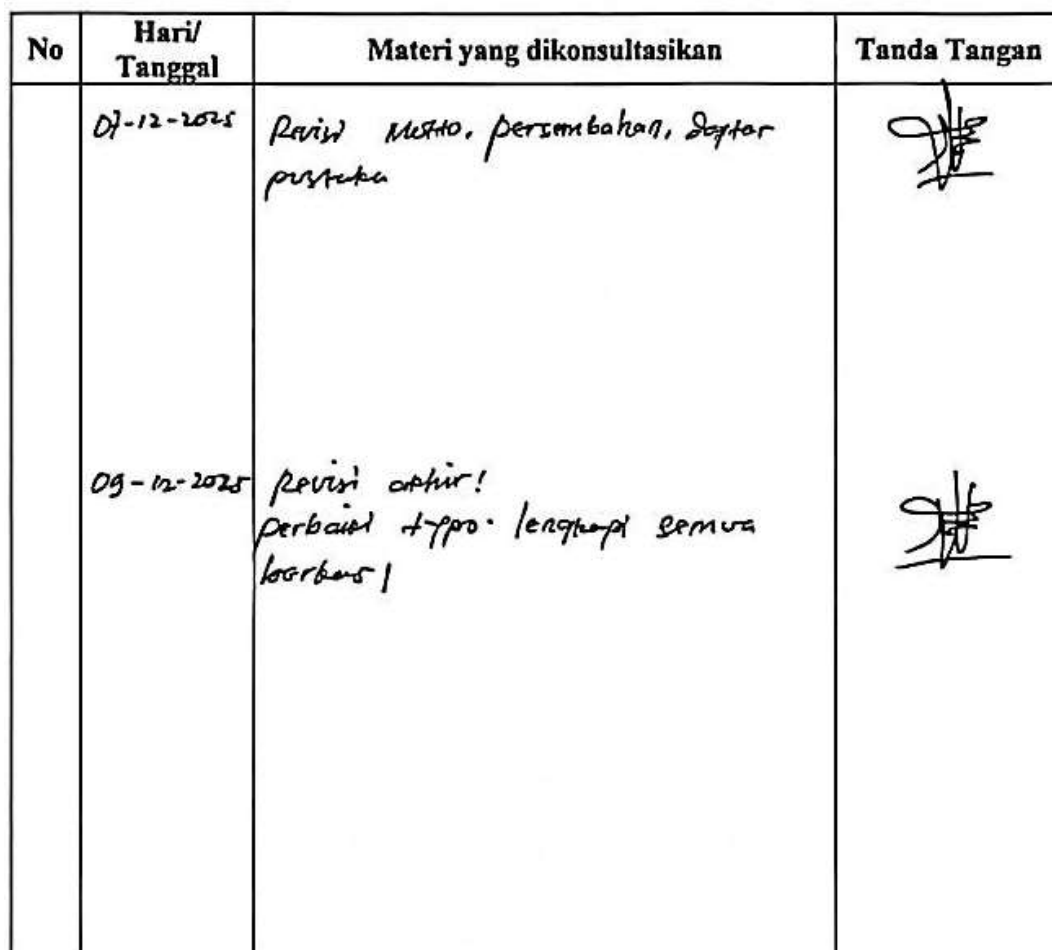 No
Hari/
Tanggal
Materi yang dikonsultasikan
Tanda Tangan
-12-2025
Revisi Motto, persembahan, Daftar
pustaka
09-12-2025
Revisi akhir!
perbaiki typo. lengkapi semua
berkas!